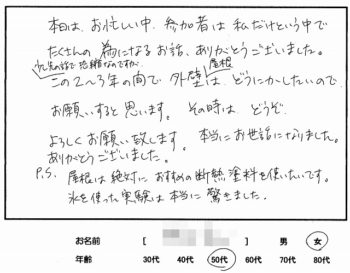 本日は、お忙しい中、参加者は私だけという中で
たくさんの為になるお話、ありがとうございました。
少し先の話で恐縮なのですが、
屋根
この2~3年の間で、外壁は、どうにかしたいので
お願いすると思います。その時は、どうぞ
よろしくお願い致します。本当にお世話になりました。
ありがとうございました。
P.S. 屋根は絶対におすすめの断熱塗料を使いたいです。
氷を使った実験は本当に驚きました。
お名前 [ ] 男 女
年齢 30代 40代 50代 60代 70代 80代